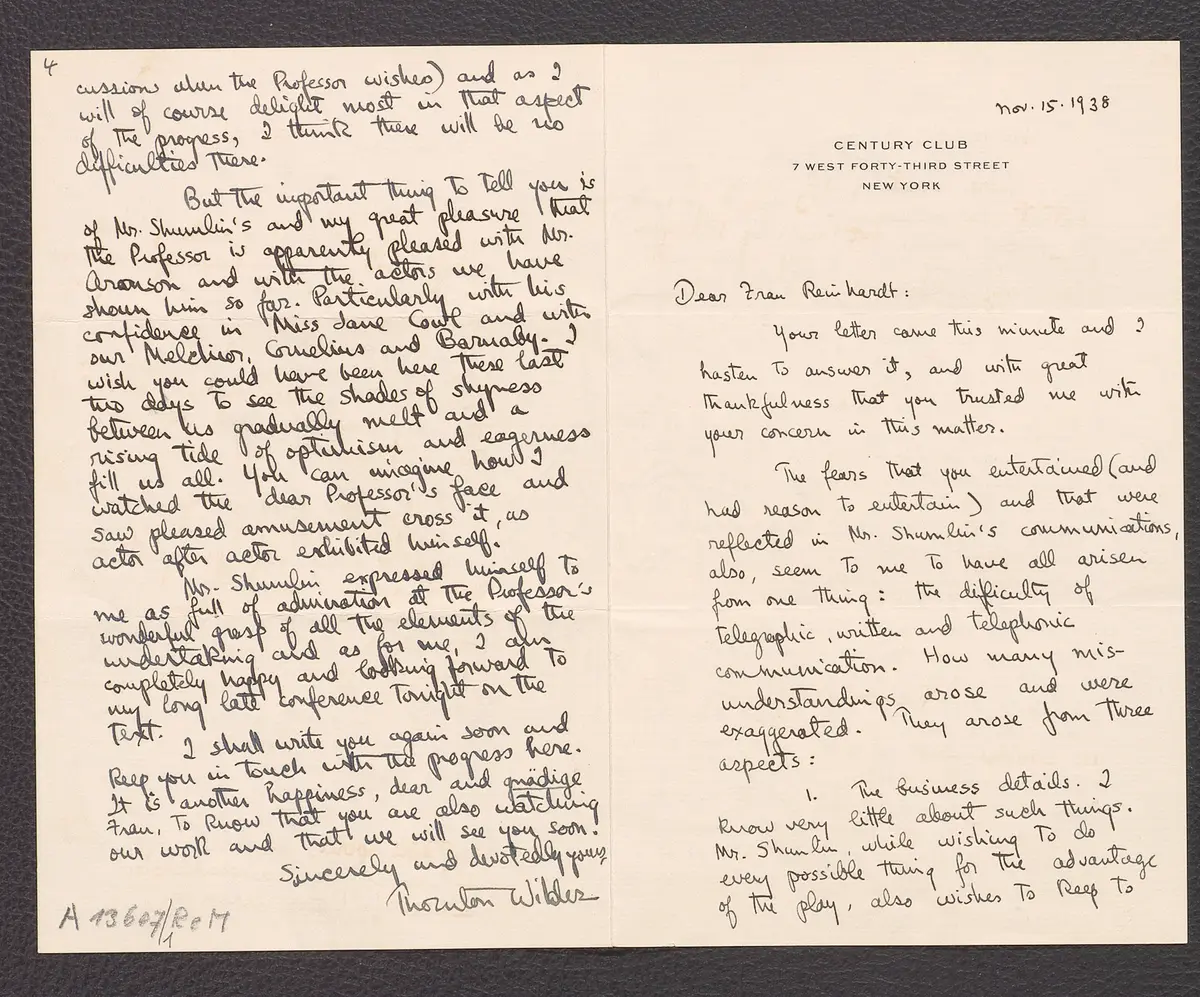 4
cussions when the Professor wishes) and as I
will of course delight most in that aspect
of the progress, I think there will be no
difficulties there.
But the important thing to tell you is
of Mr. Shumlin's and my great pleasure that
the Professor is apparently pleased with Mr.
Aronson and with the actors we have
shown him so far. Particularly with his
confidence in Miss Jane Cowl and with
our Melchior, Cornelius and Barnaby. I
wish you could have been here these last
two days to see the shades of shyness
between us gradually melt and a
rising tide of optimism and eagerness
fill us all. You can imagine how I
watched the dear Professor's face and
saw pleased amusement cross it, as
actor after actor exhibited himself.
Mr. Shumlin expressed himself to
me as full of admiration at the Professor's
wonderful grasp of all the elements of the
undertaking and as for me, I am
completely happy and looking forward to
my long late conference tonight on the
text.
I shall write you again soon and
keep you in touch with the progress here.
It is another happiness, dear and gnädige
Frau, to know that you are also watching
our work and that we will see you soon.
Sincerely and devotedly yours,
Thornton Wilder
A 13607/ReM
1
Nov. 15. 1938
CENTURY CLUB
7 WEST FORTY-THIRD STREET
NEW YORK
Dear Frau Reinhardt:
Your letter came this minute and I
hasten to answer it, and with great
thankfulness that you trusted me with
your concern in this matter.
The fears that you entertained (and
had reason to entertain) and that were
reflected in Mr. Shumlin's communications,
also, seem to me to have all arisen
from one thing: the difficulty of
telegraphic, written and telephonic
communication. How many mis-
understandings arose and were
exaggerated. They arose from three
aspects:
1. The business details. I
know very little about such things.
Mr. Shumlin, while wishing to do
every possible thing for the advantage
of the play, also wishes to keep to